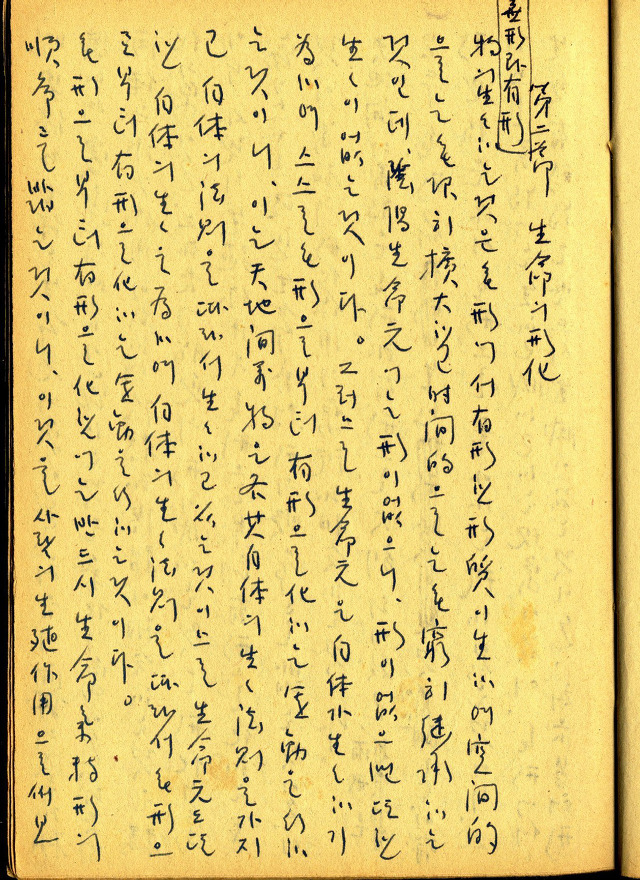 第二節 生命의形化
無形과有形
物의生々하는것은無形에서有形한形質이生하여空間的
으로는無限히擴大하고時間的으로는無窮히継承하는
것인데、陰陽生命元에는形이없으니、形이없으면또한
生々이없는것이다。그러므로生命元은自体가生々하기
為하여스스로無形으로부터有形으로化하는運動을行하
는것이니、이는天地間萬物은各其自体의生々法則을가지
고自体의法則을따라서生々하고있는것이므로生命元도또
한自体의生々을為하여自体의生々法則을따라서無形으
로부터有形으로化하는運動을行하는것이다。
無形으로부터有形으로化함에는반드시生命形의
順序를밟는것이니、이것을사람의生殖作用으로써보